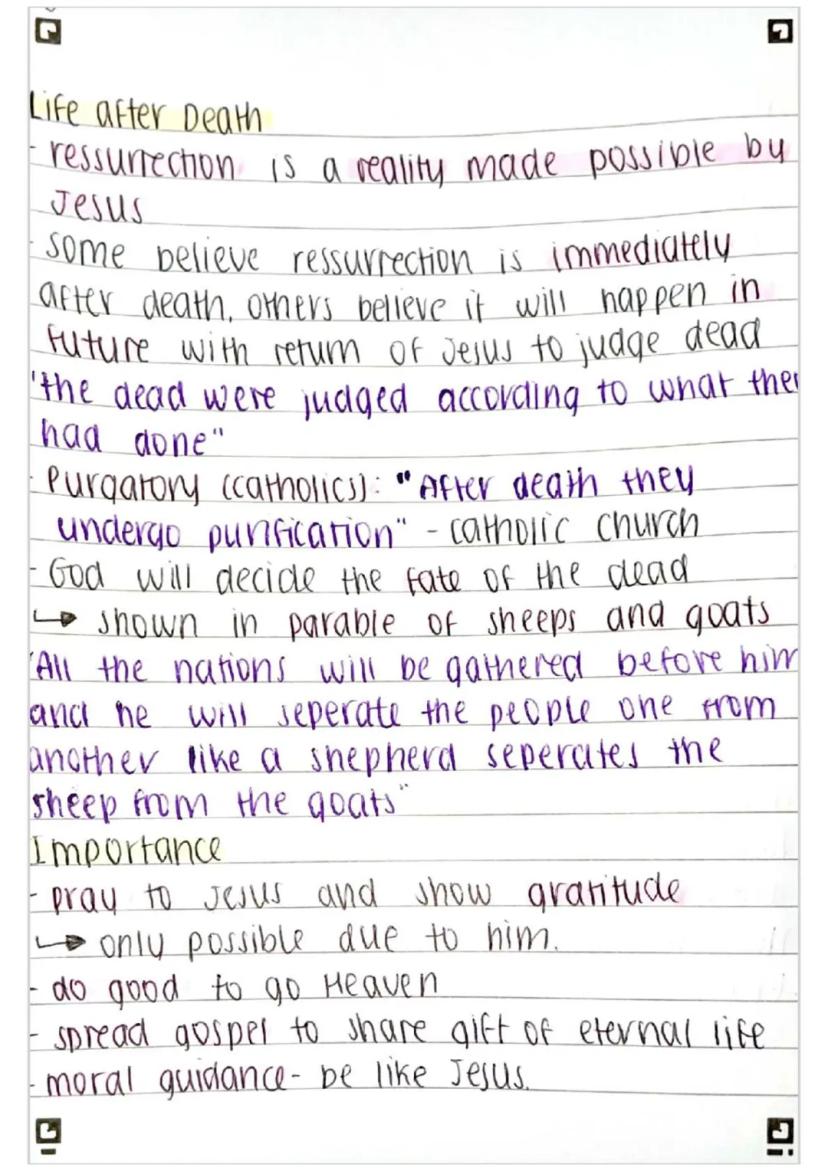 Life after Death
- ressurrection is a reality made possible by
Jesus
- some believe ressurrection is immediately
after death, others believe it will happen in
future with return of Jesus to judge dead
"the dead were judged according to what they
had done"
- Purgatory (catholics): "After death they
undergo purification" - catholic church
- God will decide the fate of the dead
↳ shown in parable of sheeps and goats
"All the nations will be gathered before him
and he will seperate the people one from
another like a shepherd seperates the
sheep from the goats"
Importance
- pray to Jesus and show gratitude
↳ only possible due to him.
- do good to go Heaven
- spread gospel to share gift of eternal life
- moral guidance - be like Jesus.